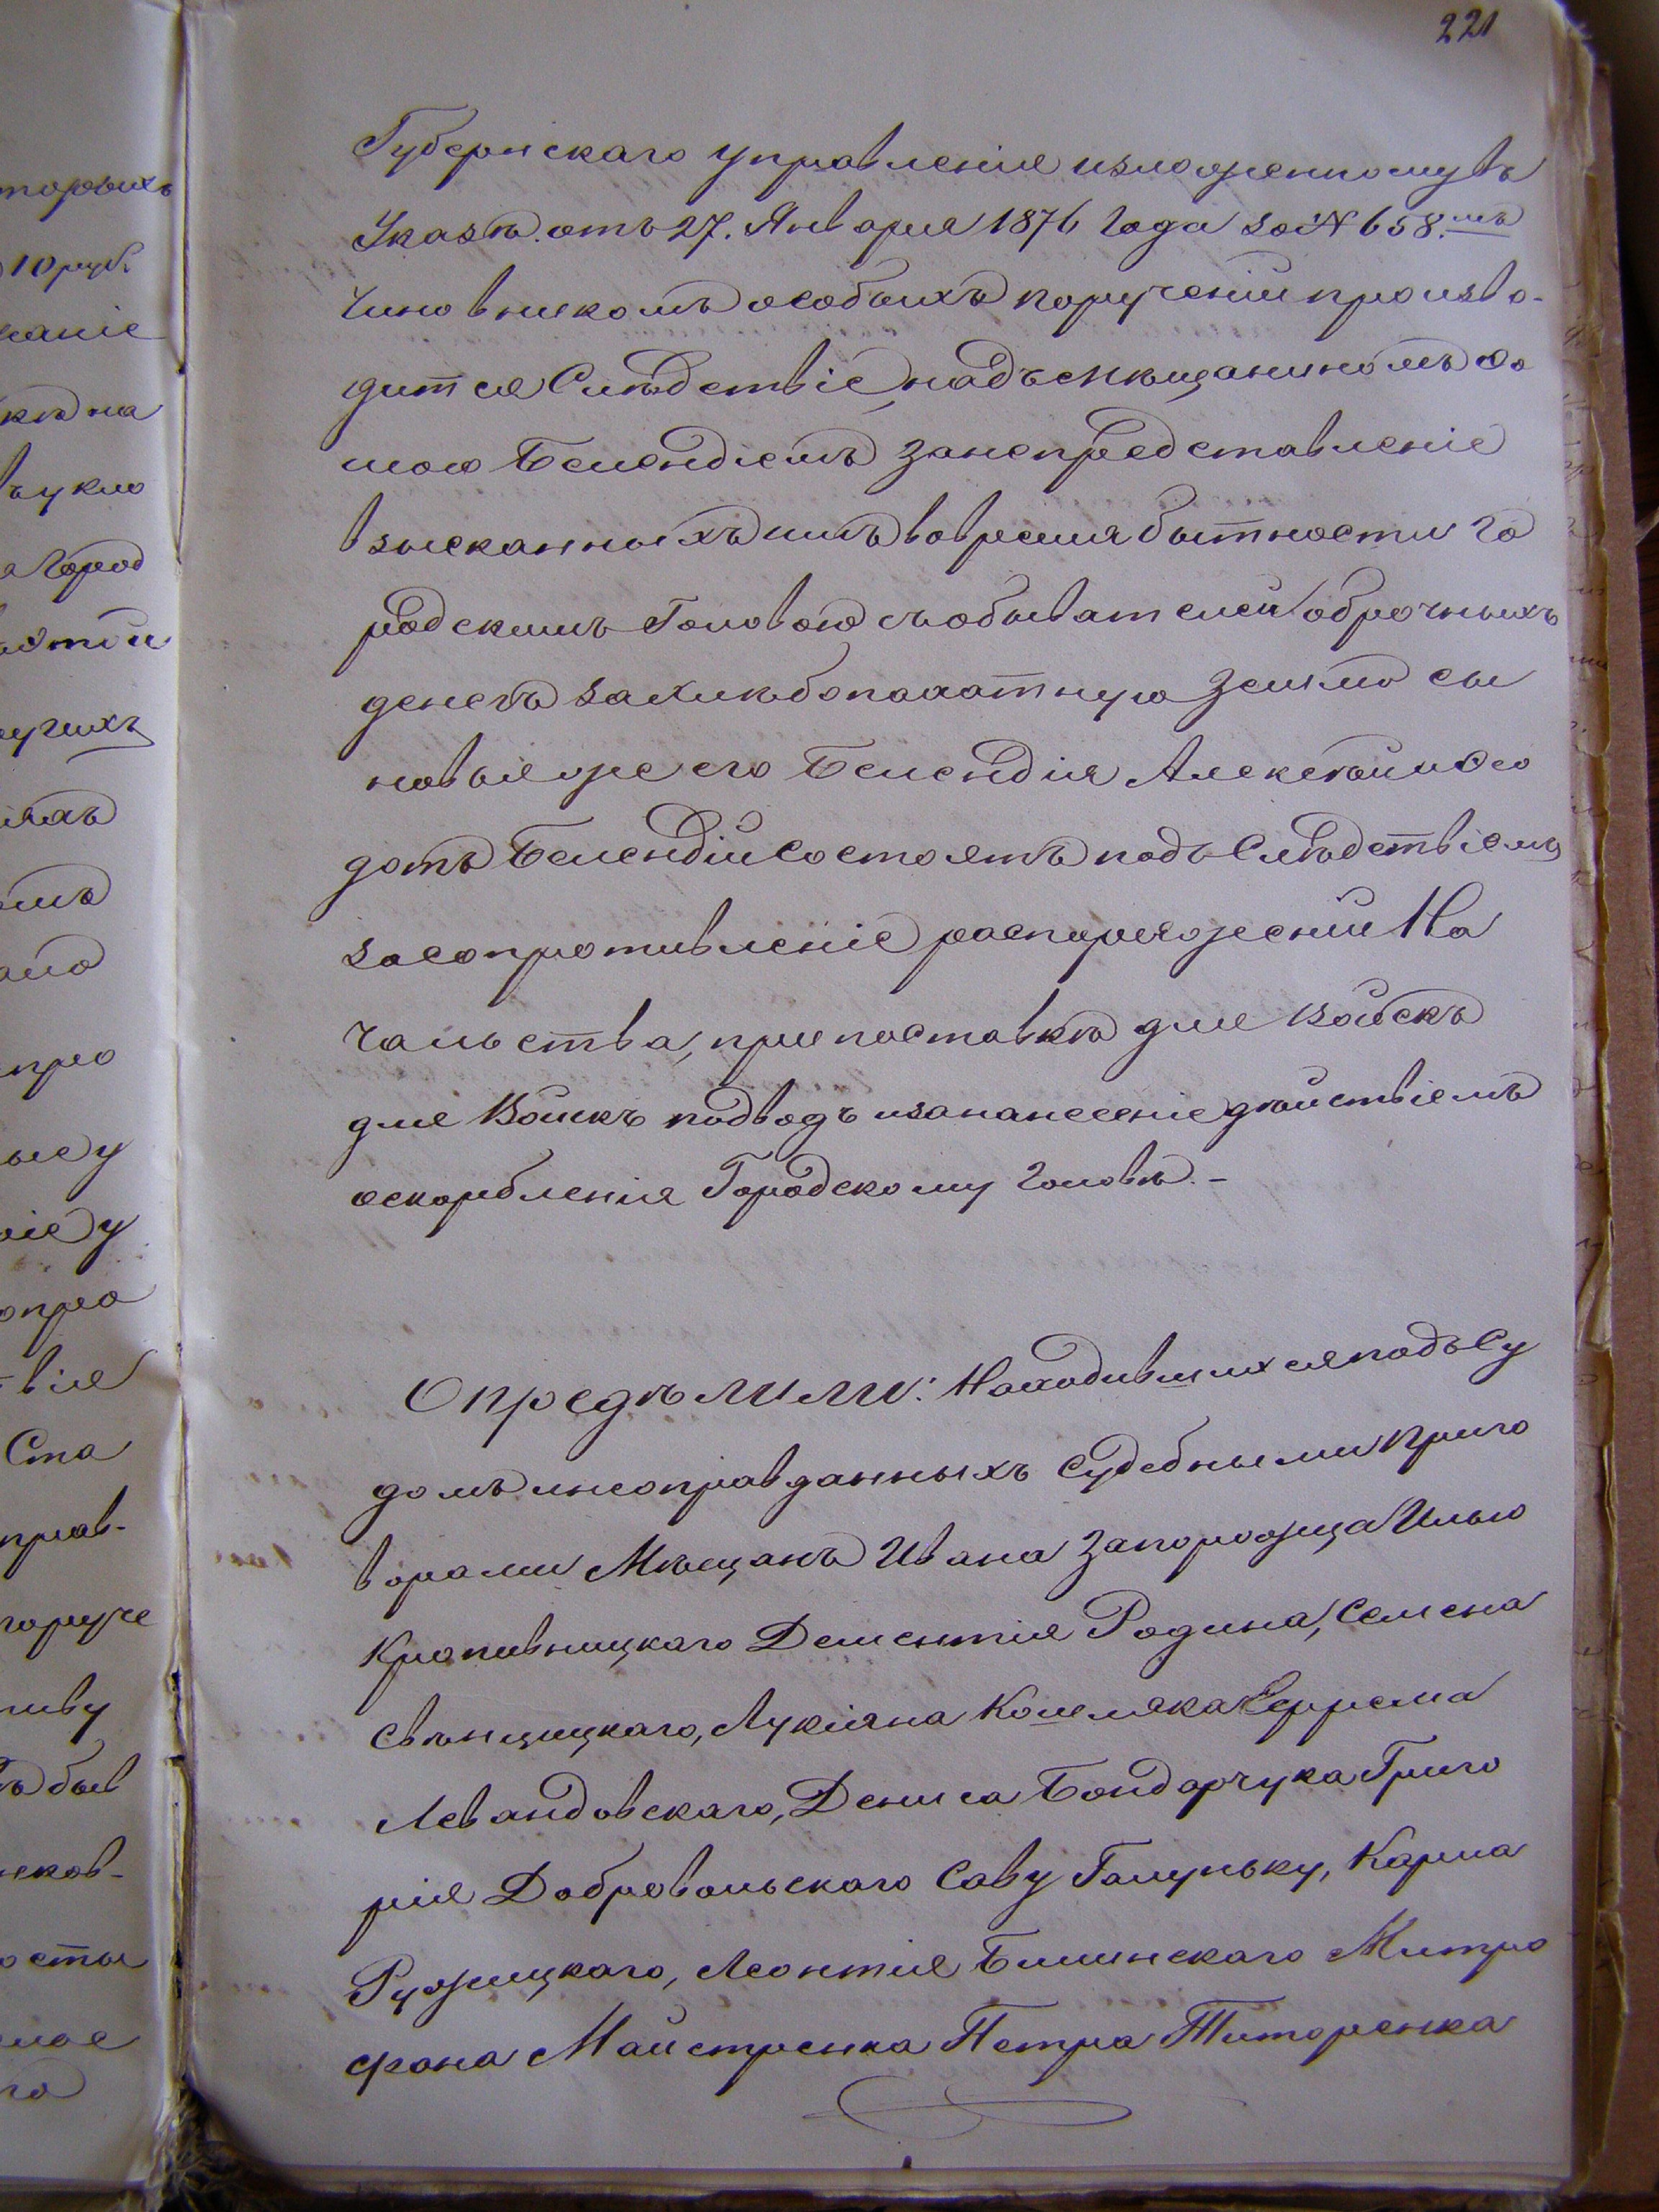 221
Губернскаго управленія изложенному въ
Указѣ отъ 27. Января 1876 года за № 658.мъ
чиновникомъ особыхъ порученій произво-
дится Слѣдствіе, надъ мѣщаниномъ Ѳо
мою Белендіемъ за непредставленіе
взысканныхъ имъ вовремя бытности го
родскимъ Головою съ обывателей оброчныхъ
денегъ за хлѣбопахатную землю сы
новья же его Белендія Алексѣй и Ѳео
дотъ Белендій состоятъ подъ Слѣдствіемъ
за сопротивленіе распоряженій На
чальства, при поставкѣ для Войскъ
для Войскъ подводъ и за нанесеніе дѣйствіемъ
оскорбленія Городскому головѣ. –
Опредѣлили: Находившихся подъ Су
домъ и неоправданныхъ Судебными приго
ворами Мѣщанъ Ивана Запорожца Илью
Кропивницкаго Дементія Родина, Семена
Свѣнцицкаго, Лукіяна Кошмяка Ефрема
Левандовскаго, Дениса Бондарчука Григо
рія Добровольскаго Саву Галуньку, Карпа
Ружицкаго, Леонтія Билинскаго Митро
фана Майстренка Петра Титоренка
торыхъ
10 руб.
каніе
кѣ на
въ укло
Город
ятой
угихъ
іяхъ
про
ые у
іе у
опро
вія
Ста
прав-
поруче
быв
иков-
го